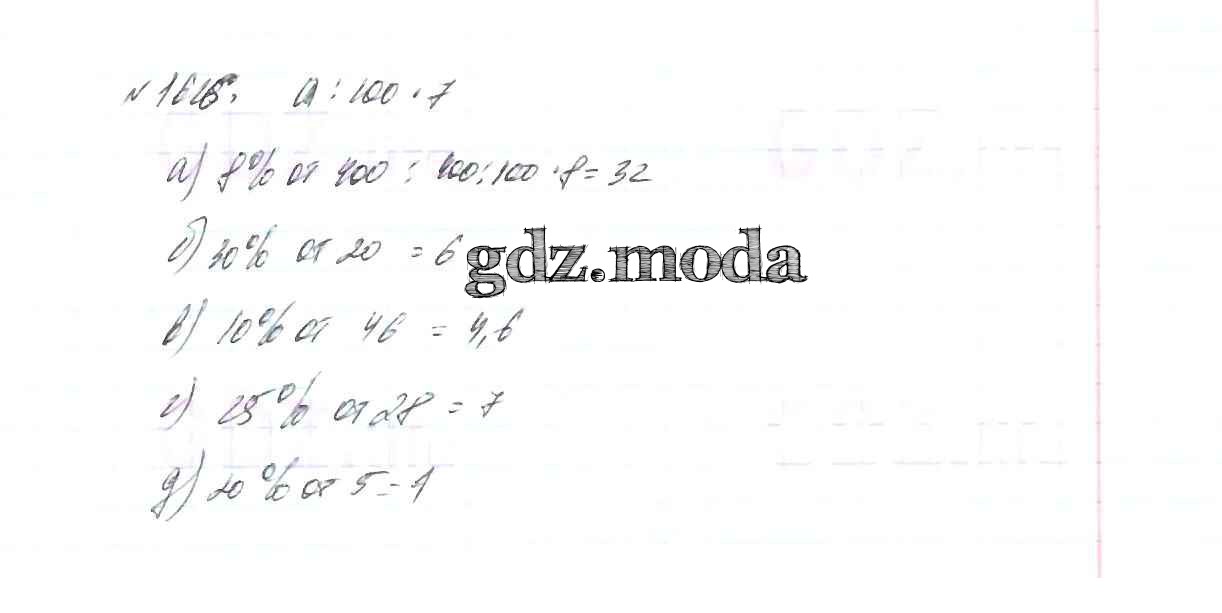 а : 100 · 7
а) 8% от 400 : 400:100 · 8 = 32
б) 30% от 20 = 6
gdz.moda
в) 10% от 46 = 4,6
г) 25% от 28 = 7
д) 20% от 5 = 1